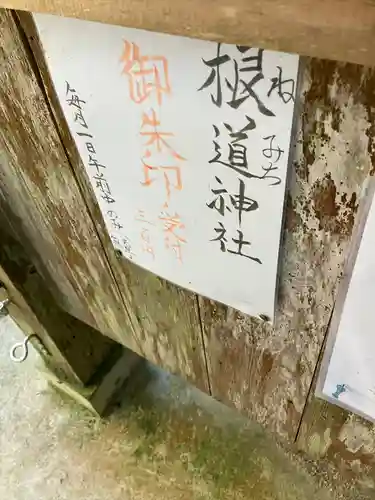 根道神社
ねみち
御朱印受
三百円
毎月一日午前中のみ